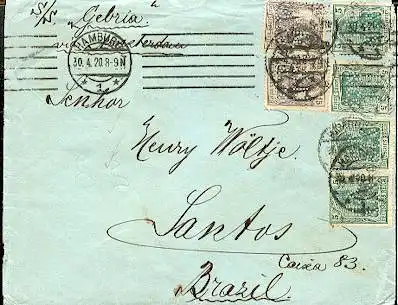 S/S "Gebria"
via Amsterdam
HAMBURG
30.4.20.8-9N
* 1 *
Senhor
Henry Wöltje.
Santos
Caixa 83.
Brazil